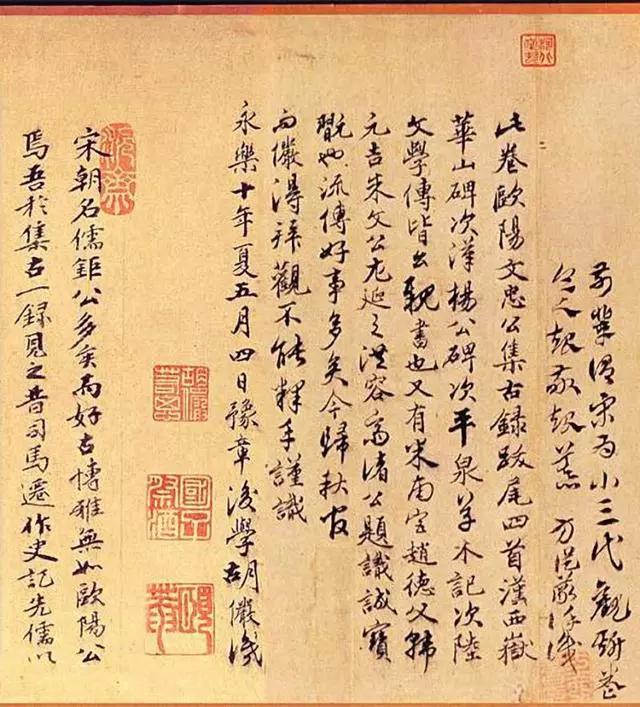 前輩謂宋為小三代觀斯卷
令人起敬起
此卷歐陽文忠公集古錄跋尾四首漢西嶽
華山碑次漢楊公碑次平泉草木記次陸
文學傳皆公親書也又有米南宮趙德父韓
元吉朱文公尤延之洪容齋諸公題識誠寶
翫也流傳好事多矣今歸秋官
而儼得拜觀不能釋手謹識
永樂十年夏五月四日豫章後學胡儼識
國子祭酒
頤菴
宋朝名儒鉅公多矣而好古博雅無如歐陽公
焉吾於集古一錄見之昔司馬遷作史記先儒以